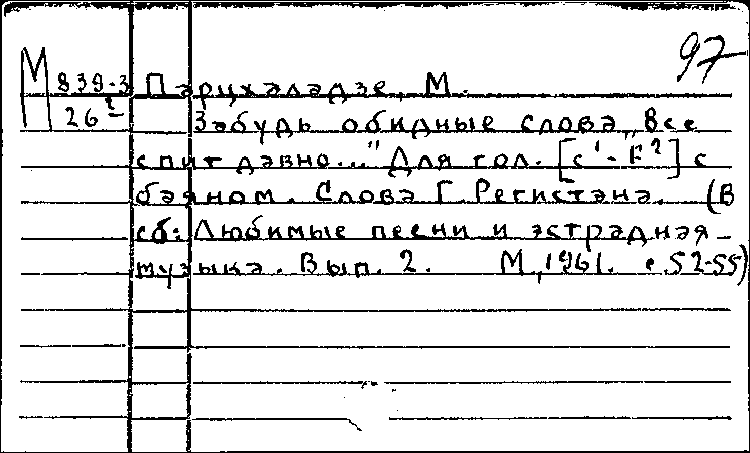 97
М 839-3 Парцхаладзе, М.
26² Забудь обидные слова „Все
спит давно..." Для гол. [c¹-F²] с
баяном. Слова Г. Регистана. (В
сб: Любимые песни и эстрадная
музыка. Вып. 2. М., 1961. с 52-55)